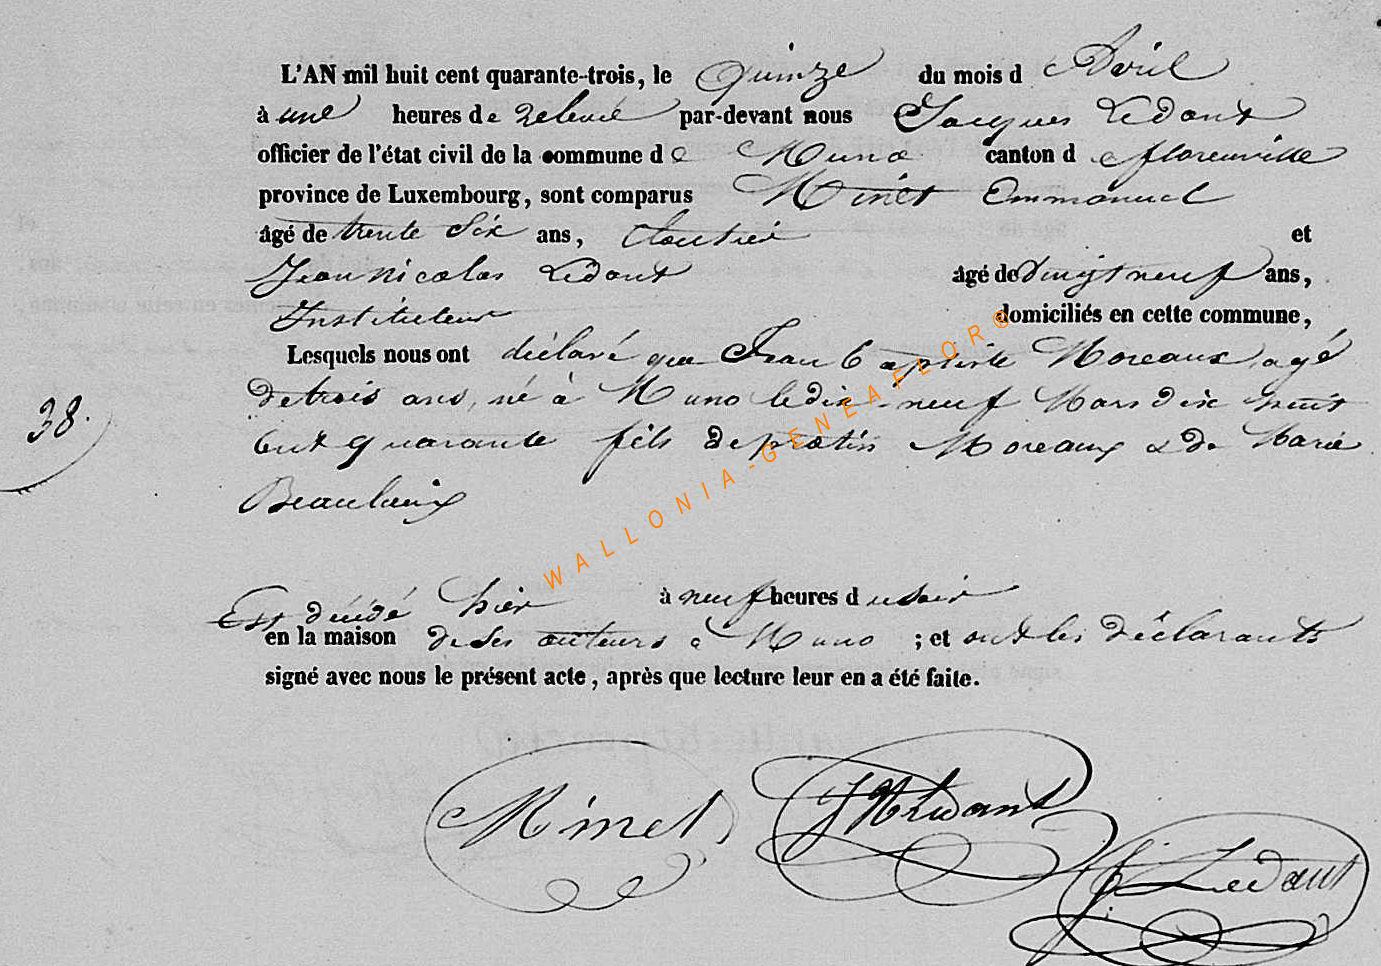 L'AN mil huit cent quarante-trois, le quinze du mois d avril
à une heures de relevée par-devant nous Jacques Ledant
officier de l'état civil de la commune de Muno canton de florenville
province de Luxembourg, sont comparus Minet Emmanuel
âgé de trente Six ans, Cloutier et
Jean Nicolas Ledant âgé de vingt neuf ans,
Instituteur domiciliés en cette commune,
Lesquels nous ont déclaré que Jean baptiste Moreaux agé
de trois ans, né à Muno le dix-neuf Mars dix huit
Cent quarante fils de Moreaux & de Marie
38.
Est décédé hier à neuf heures du Soir
en la maison de Ses auteurs à Muno ; et ont les déclarants
signé avec nous le présent acte, après que lecture leur en a été faite.
Minet JNLedant
J. Ledant
WALLONIA-GENEAFLOR©